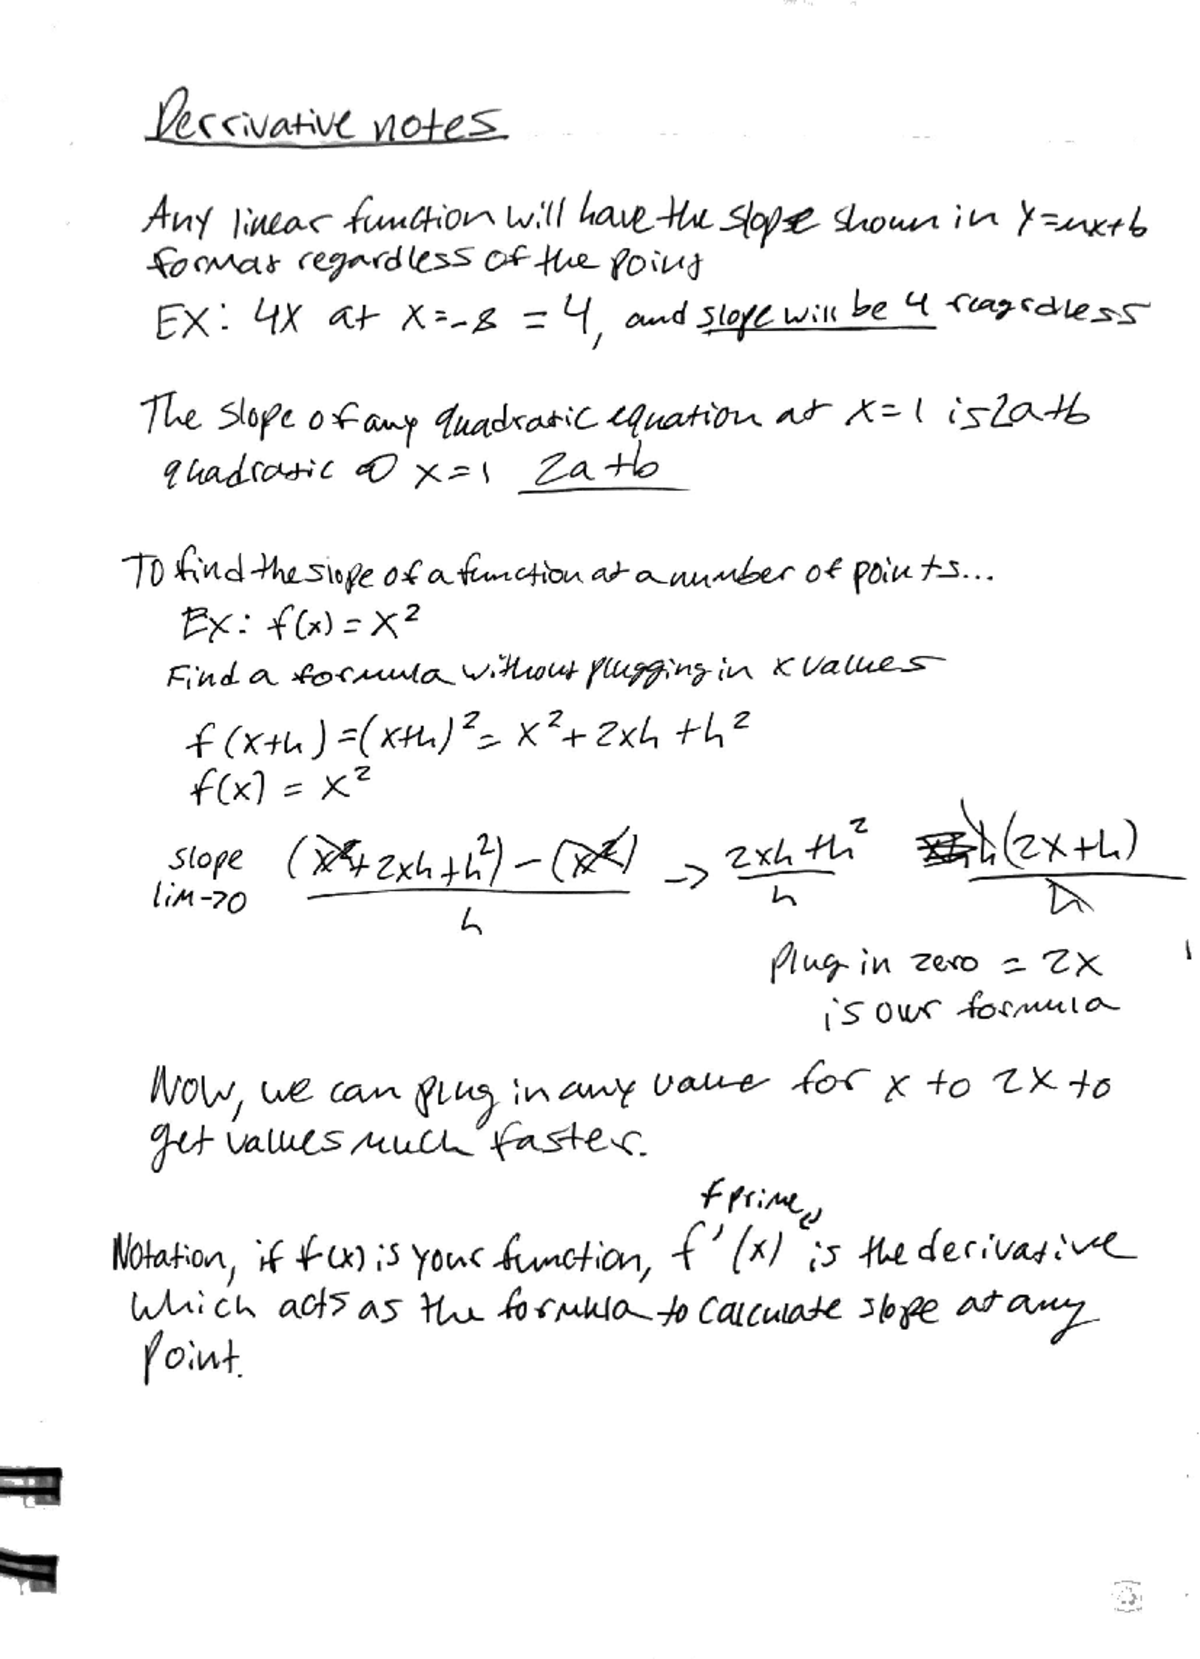 Derrivative notes
Any linear function will have the slope shown in y=mx+b
format regardless of the point
EX: 4x at x=-8 = 4, and slope will be 4 reagrdless
The slope of any quadratic equation at x=1 is 2a+b
quadratic @ x=1 2a+b
To find the slope of a function at a number of points...
Ex: f(x) = x²
Find a formula without plugging in x values
f(x+h) = (x+h)² = x² + 2xh + h²
f(x) = x²
slope (x² + 2xh + h²) - (x²) -> 2xh + h² h(2x+h)
lim->0 h h h
plug in zero = 2x
is our formula
Now, we can plug in any value for x to 2x to
get values much faster.
f prime
Notation, if f(x) is your function, f'(x) is the derivative
which acts as the formula to calculate slope at any
point.